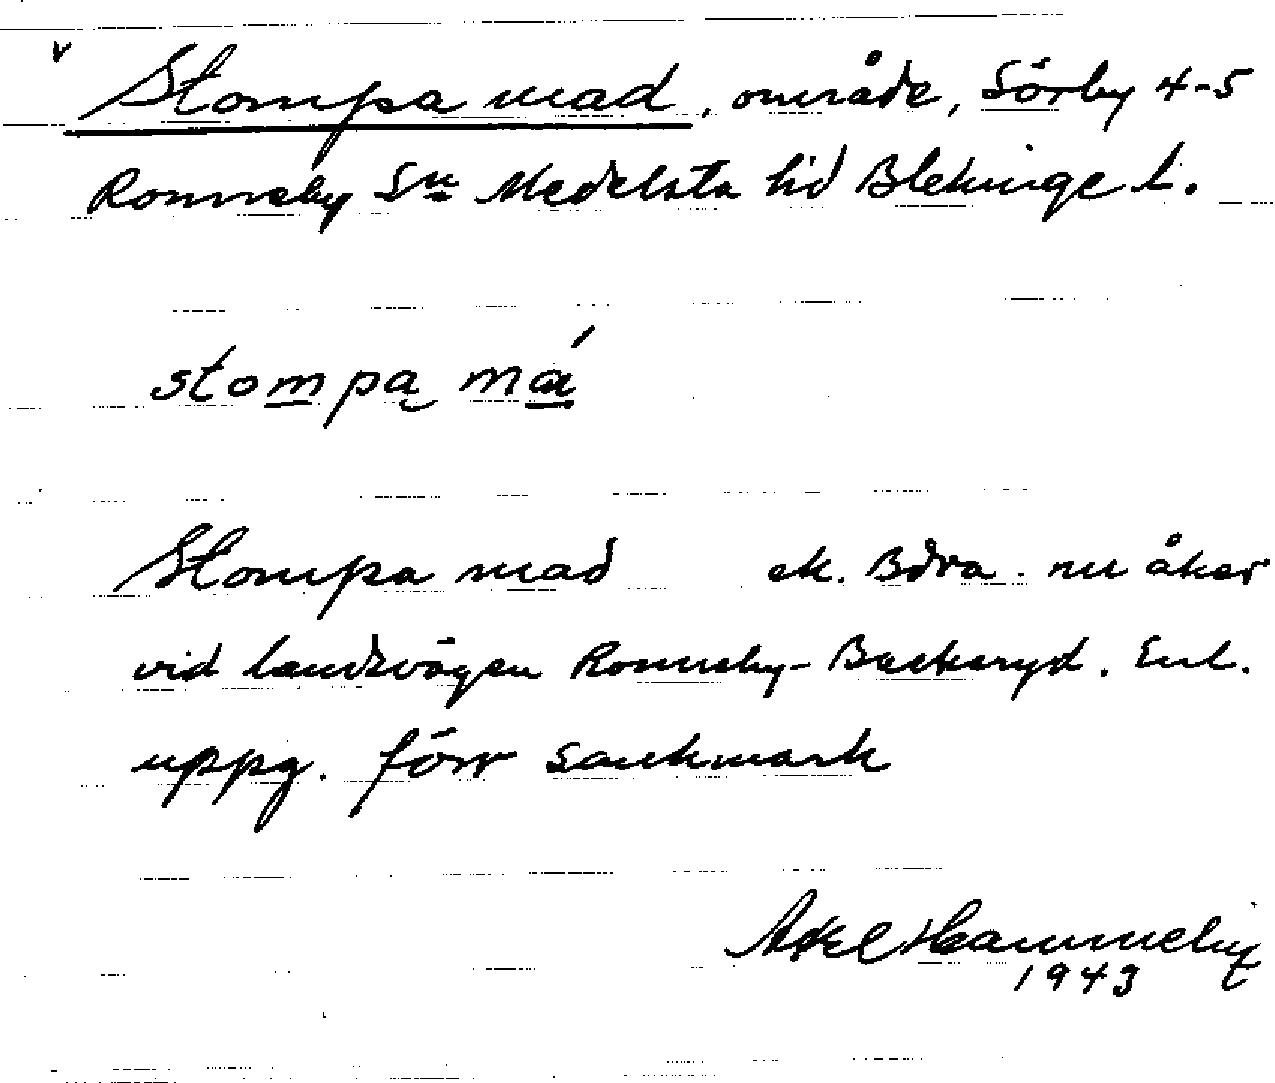 v
Stompa mad, område, Sörby 4-5
Ronneby Sn Medelsta hd Blekinge l.
stompa má
Stompa mad ek. Bdra. nu åker
vid landsvägen Ronneby-Backaryd. Enl.
uppg. förr sankmark
Axel
1943